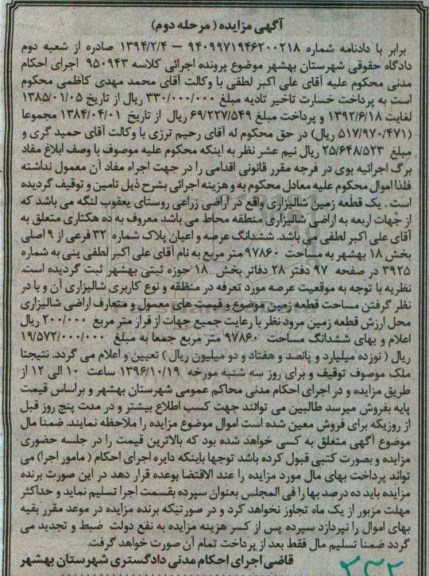 آگهی مزایده ( مرحله دوم)
برابر با دادنامه شماره ۹۴۰۹۹۷۱۹۴۶۲۰۰۲۱۸ – ۱۳۹۴/۲/۴ صادره از شعبه دوم
دادگاه حقوقی شهرستان بهشهر موضوع پرونده اجرائی کلاسه ۹۵۰۹۴۳ اجرای احکام
مدنی محکوم علیه آقای علی اکبر لطفی با وکالت آقای محمد مهدی کاظمی محکوم
است به پرداخت خسارت تاخیر تادیه مبلغ ۳۳۰/۰۰۰/۰۰۰ ریال از تاریخ ۱۳۸۵/۰۱/۰۵
لغایت ۱۳۹۲/۶/۱۸ و پرداخت مبلغ ۶۹/۲۲۷/۵۴۹ ریال از تاریخ ۱۳۸۴/۰۴/۰۱ مجموعا
(۵۱۷/۹۷۰/۴۷۱ ریال) در حق محکوم له آقای رحیم ترزی با وکالت آقای حمید گری و
مبلغ ۲۵/۶۴۸/۵۲۳ ریال نیم عشر نظر به اینکه محکوم علیه موصوف با وصف ابلاغ مفاد
برگ اجرائیه بوی در فرجه مقرر قانونی اقدامی را در جهت اجراء مفاد آن معمول نداشته
فلذا اموال محکوم علیه معادل محکوم به و هزینه اجرائی بشرح ذیل تامین و توقیف گردیده
است . یک قطعه زمین شالیزاری واقع در اراضی زراعی روستای یعقوب لنگه می باشد که
از جهات اربعه به اراضی شالیزاری منطقه محاط می باشد معروف به ده هکتاری متعلق به
آقای علی اکبر لطفی می باشد. ششدانگ عرصه و اعیان پلاک شماره ۳۲ فرعی از ۹ اصلی
بخش ۱۸ بهشهر به مساحت ۹۷۸۶۰ متر مربع به نام آقای علی اکبر لطفی ینی به شماره
۳۹۲۵ در صفحه ۹۷ دفتر ۲۸ دفاتر بخش ۱۸ حوزه ثبتی بهشهر ثبت گردیده است.
نظریه با توجه به موقعیت عرصه مورد تعرفه در منطقه و نوع کاربری شالیزاری آن و با در
نظر گرفتن مساحت قطعه زمین موضوع و قیمت های معمول و متعارف اراضی شالیزاری
محل ارزش قطعه زمین مرود نظر با رعایت جمیع جهات از قرار متر مربع ۲۰۰/۰۰۰ ریال
اعلام و بهای ششدانگ مساحت ۹۷۸۶۰ متر مربع جمعا به مبلغ ۱۹/۵۷۲/۰۰۰/۰۰۰
ریال ( نوزده میلیارد و پانصد و هفتاد و دو میلیون ریال ) تعیین و اعلام می گردد. نتیجتا
ملک موصوف توقیف و برای روز سه شنبه مورخه ۱۳۹۶/۱۰/۱۹ ساعت ۱۰ الی ۱۲ از
طریق مزایده و در اجرای احکام مدنی محاکم عمومی شهرستان بهشهر و براساس قیمت
پایه بفروش میرسد طالبین می توانند جهت کسب اطلاع بیشتر و در مدت پنج روز قبل
از روزیکه برای فروش معین شده است اموال موضوع مزایده را ملاحظه نمایند. ضمنا مال
موضوع آگهی متعلق به کسی خواهد شده بود که بالاترین قیمت را در جلسه حضوری
مزایده و بصورت کتبی قبول کرده باشد توجها باینکه دایره اجرای احکام ( مامور اجرا) می
تواند پرداخت بهای مال مورد مزایده را عند الاقتضا بوعده قرار دهد در این صورت برنده
مزایده باید ده درصد بها را فی المجلس بعنوان سپرده بقسمت اجرا تسلیم نماید و حداکثر
مهلت مزبور از یک ماه تجاوز نخواهد کرد و در صورتیکه برنده مزایده در موعد مقرر بقیه
بهای اموال را نپردازد سپرده پس از کسر هزینه مزایده به نفع دولت ضبط و تجدید می
گردد ضمنا تسلیم مال فقط بعد از پرداخت تمام آن صورت خواهد گرفت.
قاضی اجرای احکام مدنی دادگستری شهرستان بهشهر
۲۴۲